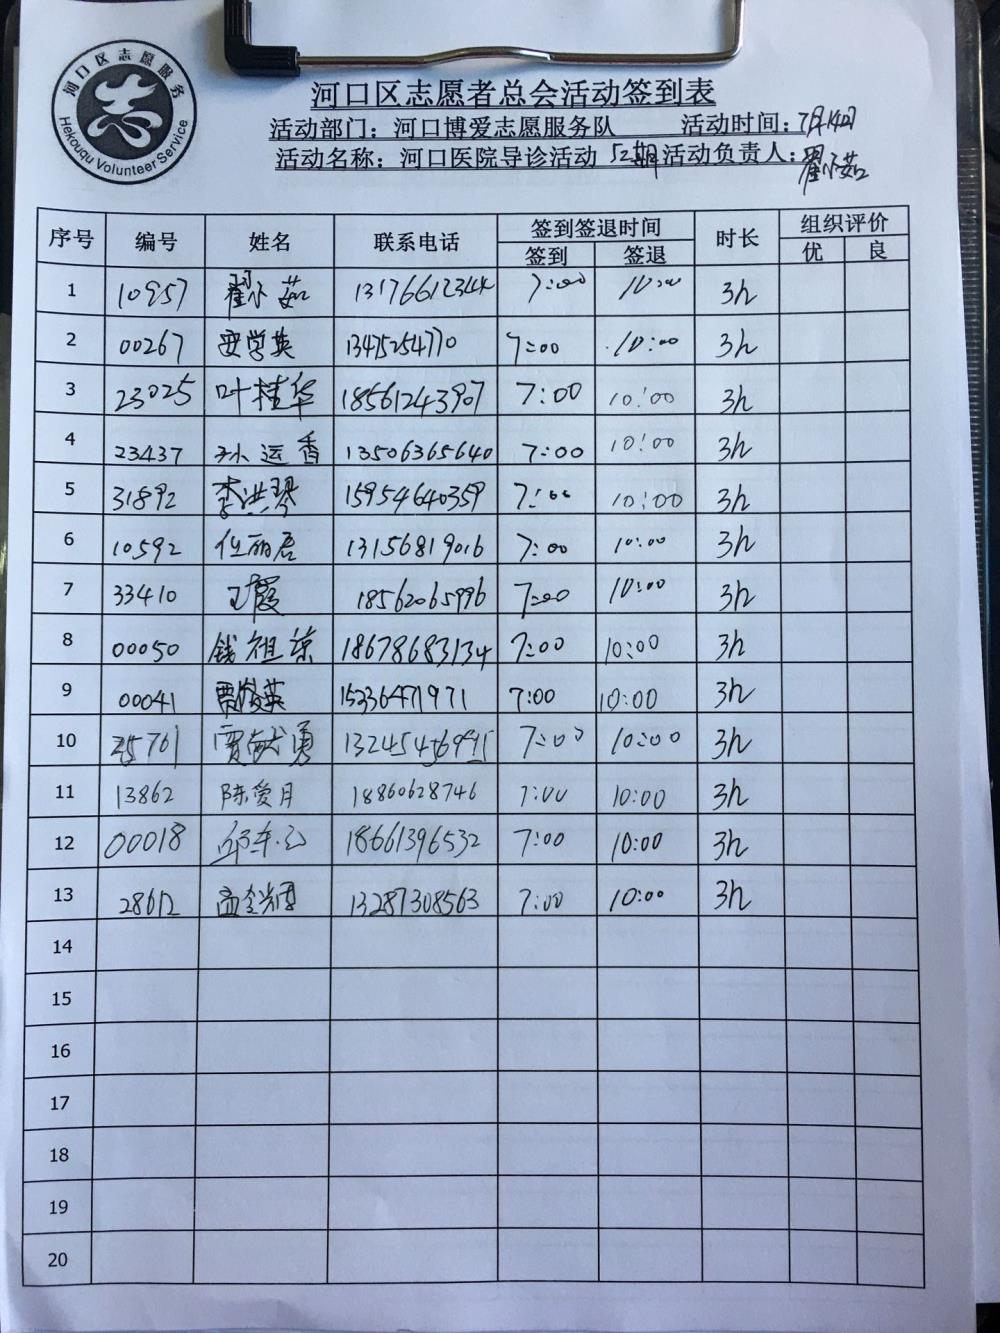 河口区志愿服务
Hekouqu Volunteer Service
河口区志愿者总会活动签到表
活动部门：河口博爱志愿服务队 活动时间：7月14日
活动名称：河口医院导诊活动 52期 活动负责人：翟小茹
序号 编号 姓名 联系电话 签到签退时间 时长 组织评价
签到 签退 优 良
1 10957 翟小茹 13176612344 7:00 10:00 3h
2 00267 13475254770 7:00 10:00 3h
3 23025 叶桂华 18561243907 7:00 10:00 3h
4 23437 孙运香 13506365640 7:00 10:00 3h
5 31892 李洪琴 15954640359 7:00 10:00 3h
6 10592 任丽君 13156819016 7:00 10:00 3h
7 33410 王霞 18562065996 7:00 10:00 3h
8 00050 钱祖琼 18678683134 7:00 10:00 3h
9 00041 15336471971 7:00 10:00 3h
10 25761 贾献勇 7:00 10:00 3h
11 13862 陈爱月 18860628746 7:00 10:00 3h
12 00018 18661396532 7:00 10:00 3h
13 28612 13287308563 7:00 10:00 3h
14
15
16
17
18
19
20